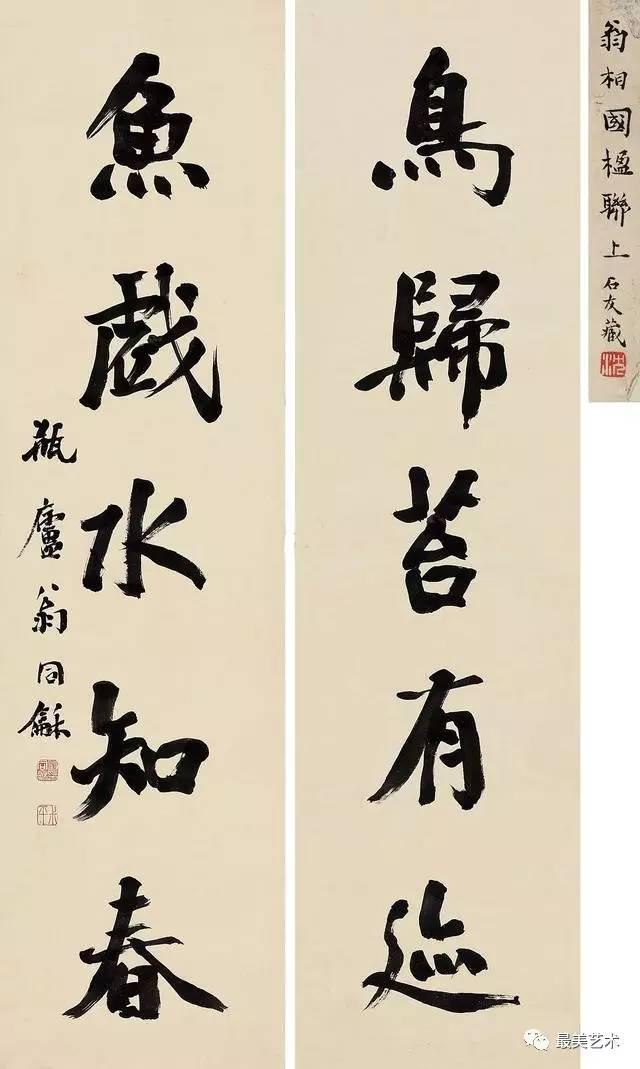 翁相國楹聯上 石友藏
鳥歸苔有迹
魚戲水知春
瓶廬翁同龢
最美艺术